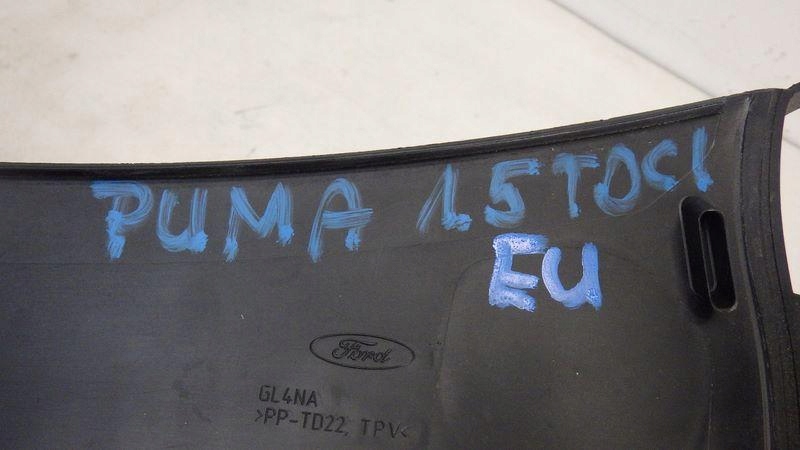 PUMA 1.5 TDCI
EU
Ford
GL4NA
>PP-TD22, TPV<